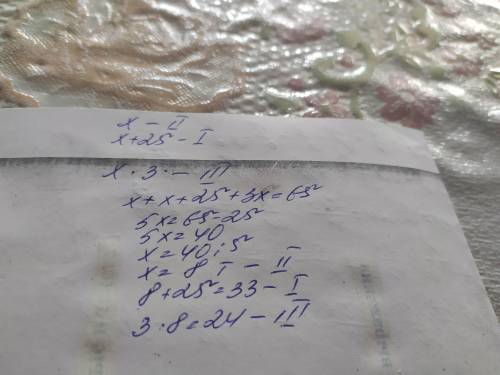 x - II
x+25 - I
x · 3 · - III
x + x + 25 + 3x = 65
5x = 65 - 25
5x = 40
x = 40 : 5
x = 8 т - II
8 + 25 = 33 - I
3 · 8 = 24 - III